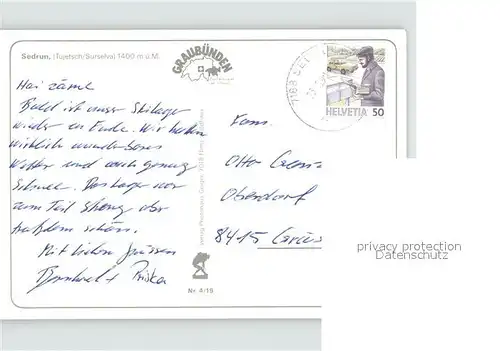 Sedrun, (Tujetsch/Surselva) 1400 m ü.M.
GRAUBÜNDEN
7188 SE
HELVETIA 50
Hai zäme
Bald ist unser Skilager
wieder zu Ende. Wir hatten
wirklich wunderbares
Wetter und auch genug
Schnee. Das Lager war
zum Teil streng aber
trotzdem schön.
Mit lieben Grüssen
Fam.
Otto
Oberdorf
8415
Nr. 4/15
privacy protection
Datenschutz